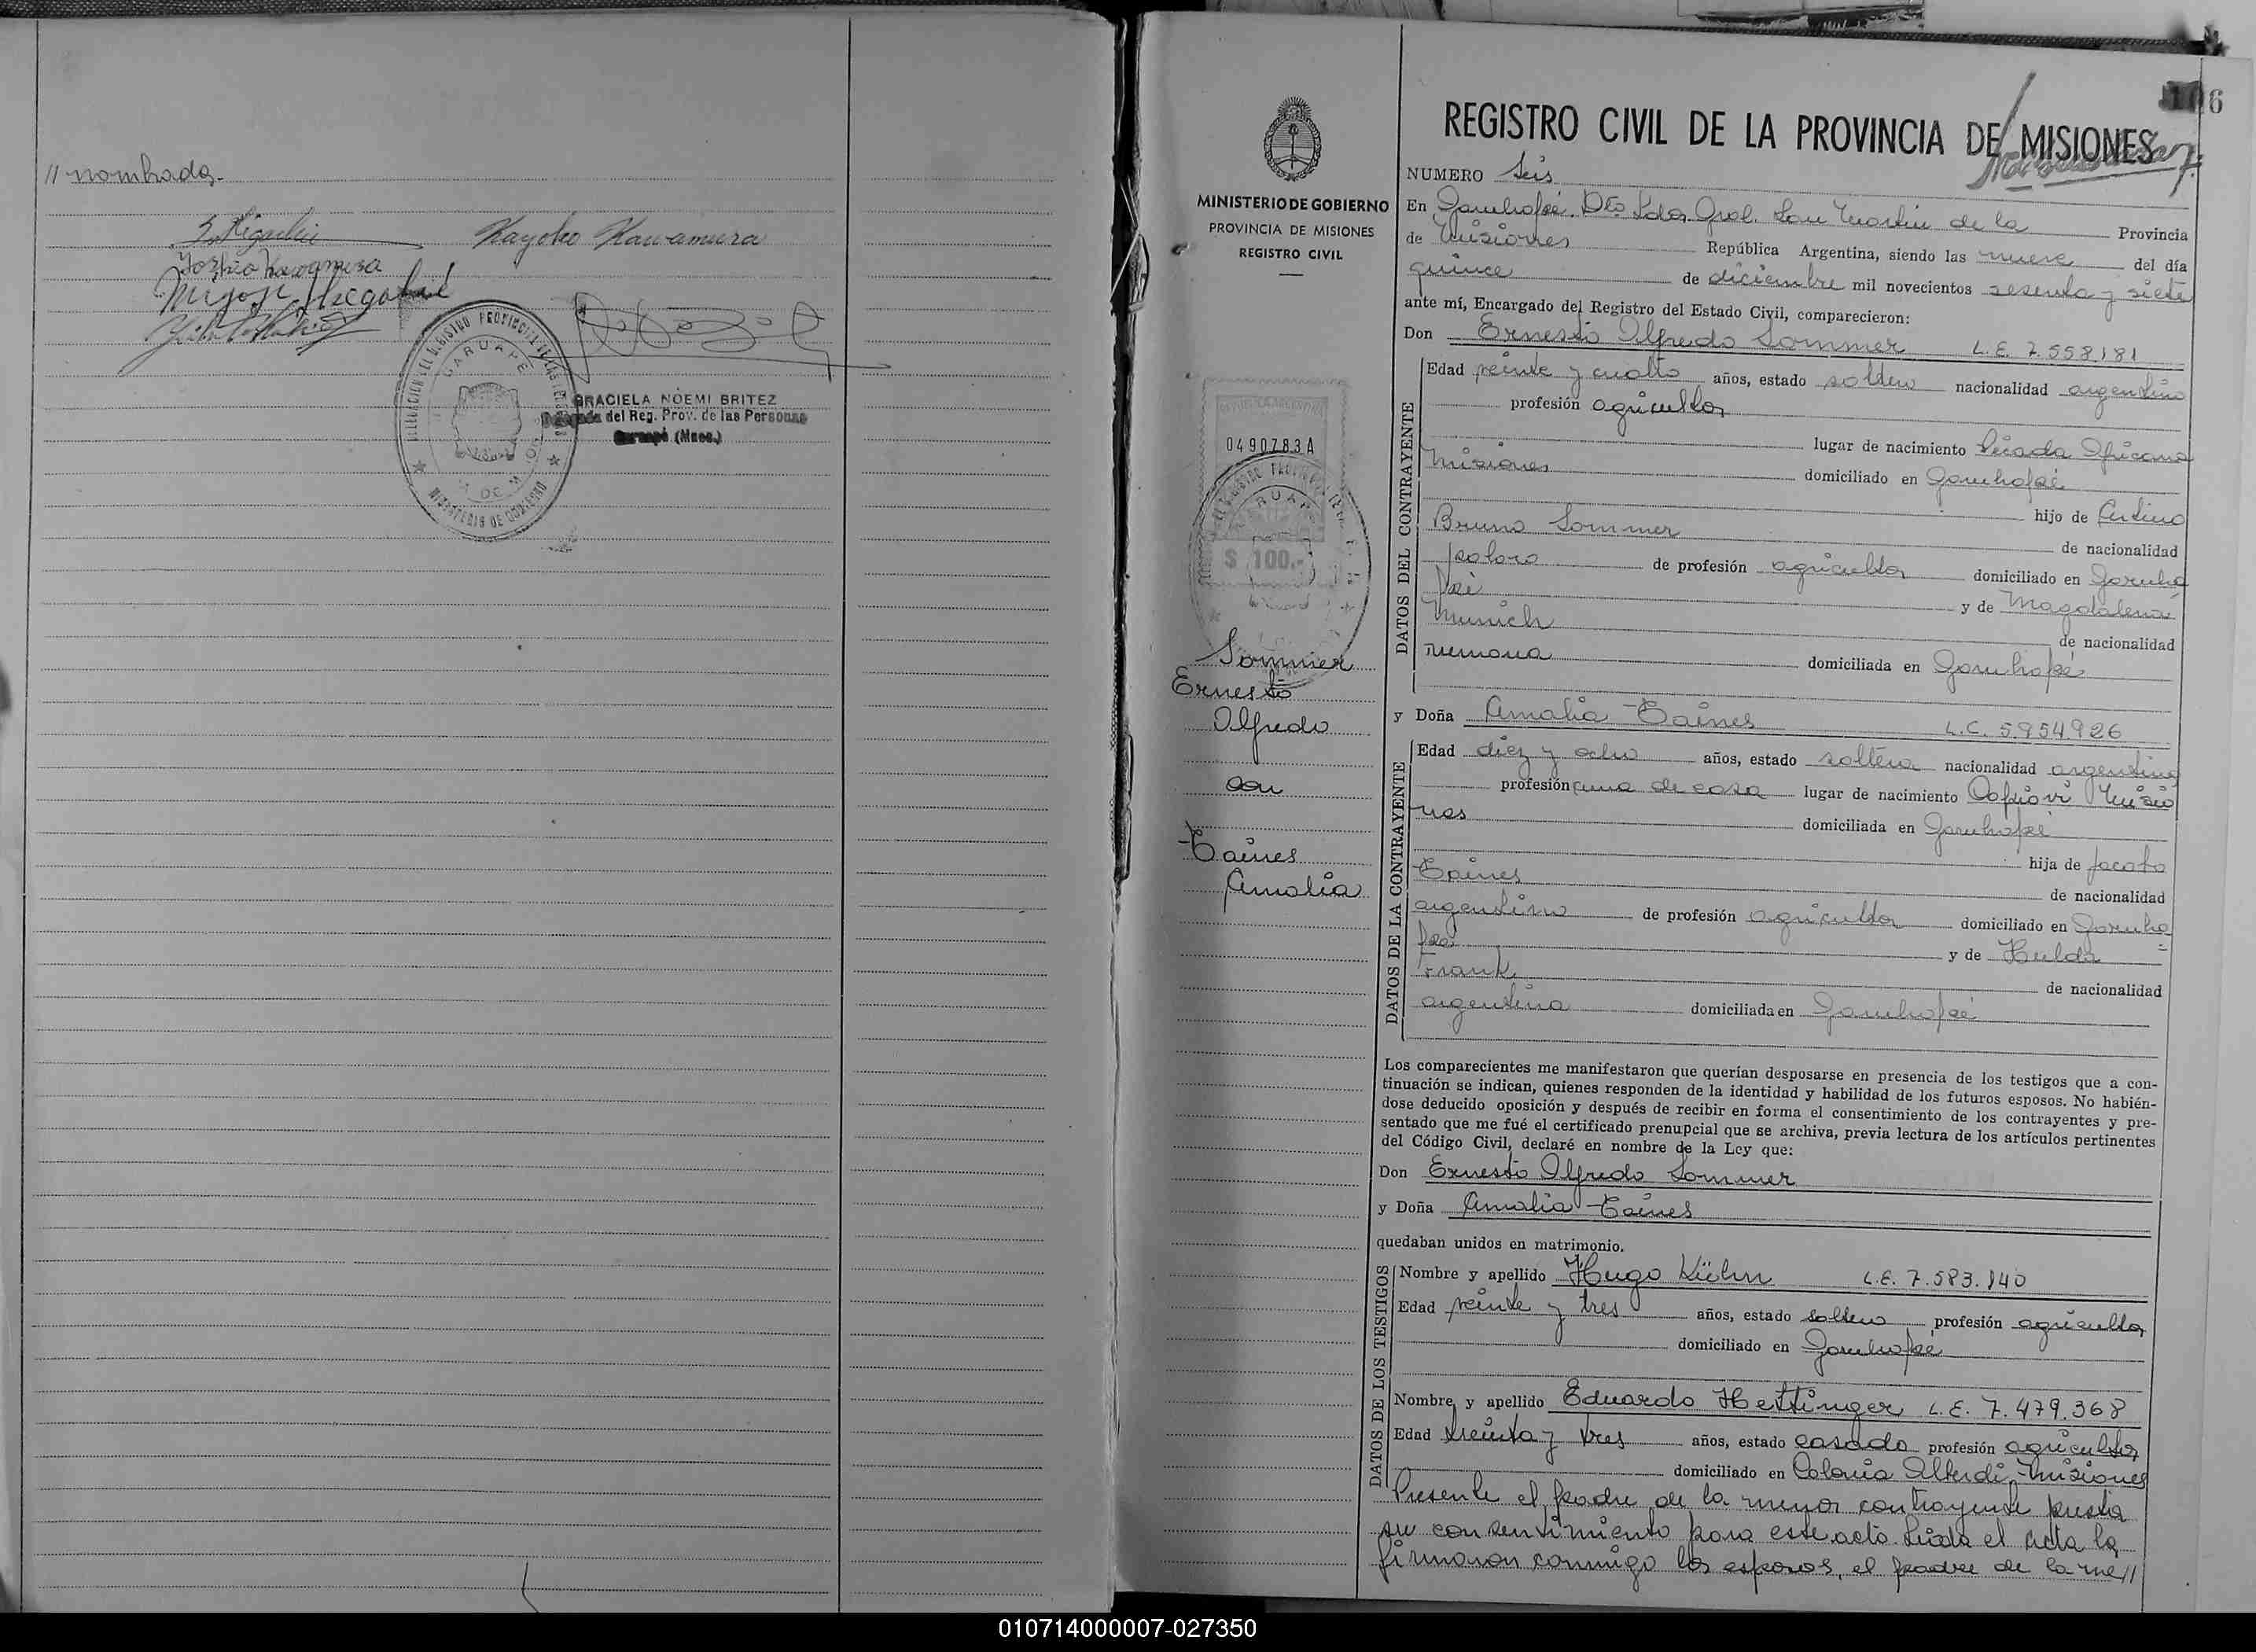 // nombrada.
Kayoko Kawamura
Yoshio Kawamura
GARUAPE
MINISTERIO DE GOBIERNO
GRACIELA NOEMI BRITEZ
Delegada del Reg. Prov. de las Personas
Garuapé (Mnes.)
6
REGISTRO CIVIL DE LA PROVINCIA DE MISIONES
MINISTERIO DE GOBIERNO
PROVINCIA DE MISIONES
REGISTRO CIVIL
0490783A
$ 100.-
Sommer
Ernesto
Alfredo
con
Taines
Amalia
NUMERO Seis
En Garuhapé. Dto. Ldor. Gral. San Martín de la Provincia
de Misiones República Argentina, siendo las nueve del día
quince de diciembre mil novecientos sesenta y siete
ante mí, Encargado del Registro del Estado Civil, comparecieron:
Don Ernesto Alfredo Sommer L.E. 7.558.181
DATOS DEL CONTRAYENTE
Edad veinte y cuatro años, estado soltero nacionalidad argentino
profesión agricultor
lugar de nacimiento Picada Africana
Misiones domiciliado en Garuhapé
hijo de
Bruno Sommer de nacionalidad
polaco de profesión agricultor domiciliado en Garuha
pé y de Magdalena
Munich de nacionalidad
rumana domiciliada en Garuhapé
y Doña Amalia Taines L.C. 5.954.926
DATOS DE LA CONTRAYENTE
Edad diez y ocho años, estado soltera nacionalidad argentina
profesión ama de casa lugar de nacimiento Capiovi Misio
nes domiciliada en Garuhapé
hija de Jacobo
Taines de nacionalidad
argentino de profesión agricultor domiciliado en Garuha
pé y de Hulda
Frank de nacionalidad
argentina domiciliada en Garuhapé
Los comparecientes me manifestaron que querían desposarse en presencia de los testigos que a con-
tinuación se indican, quienes responden de la identidad y habilidad de los futuros esposos. No habién-
dose deducido oposición y después de recibir en forma el consentimiento de los contrayentes y pre-
sentado que me fué el certificado prenupcial que se archiva, previa lectura de los artículos pertinentes
del Código Civil, declaré en nombre de la Ley que:
Don Ernesto Alfredo Sommer
y Doña Amalia Taines
quedaban unidos en matrimonio.
DATOS DE LOS TESTIGOS
Nombre y apellido Hugo Kühn L.E. 7.583.140
Edad veinte y tres años, estado soltero profesión agricultor
domiciliado en Garuhapé
Nombre y apellido Eduardo Hettinger L.E. 7.479.368
Edad treinta y tres años, estado casado profesión agricultor
domiciliado en Colonia Alberdi - Misiones
Presente el padre de la menor contrayente presta
su consentimiento para este acto. Leída el acta la
firmaron conmigo los esposos, el padre de la me//
010714000007-027350